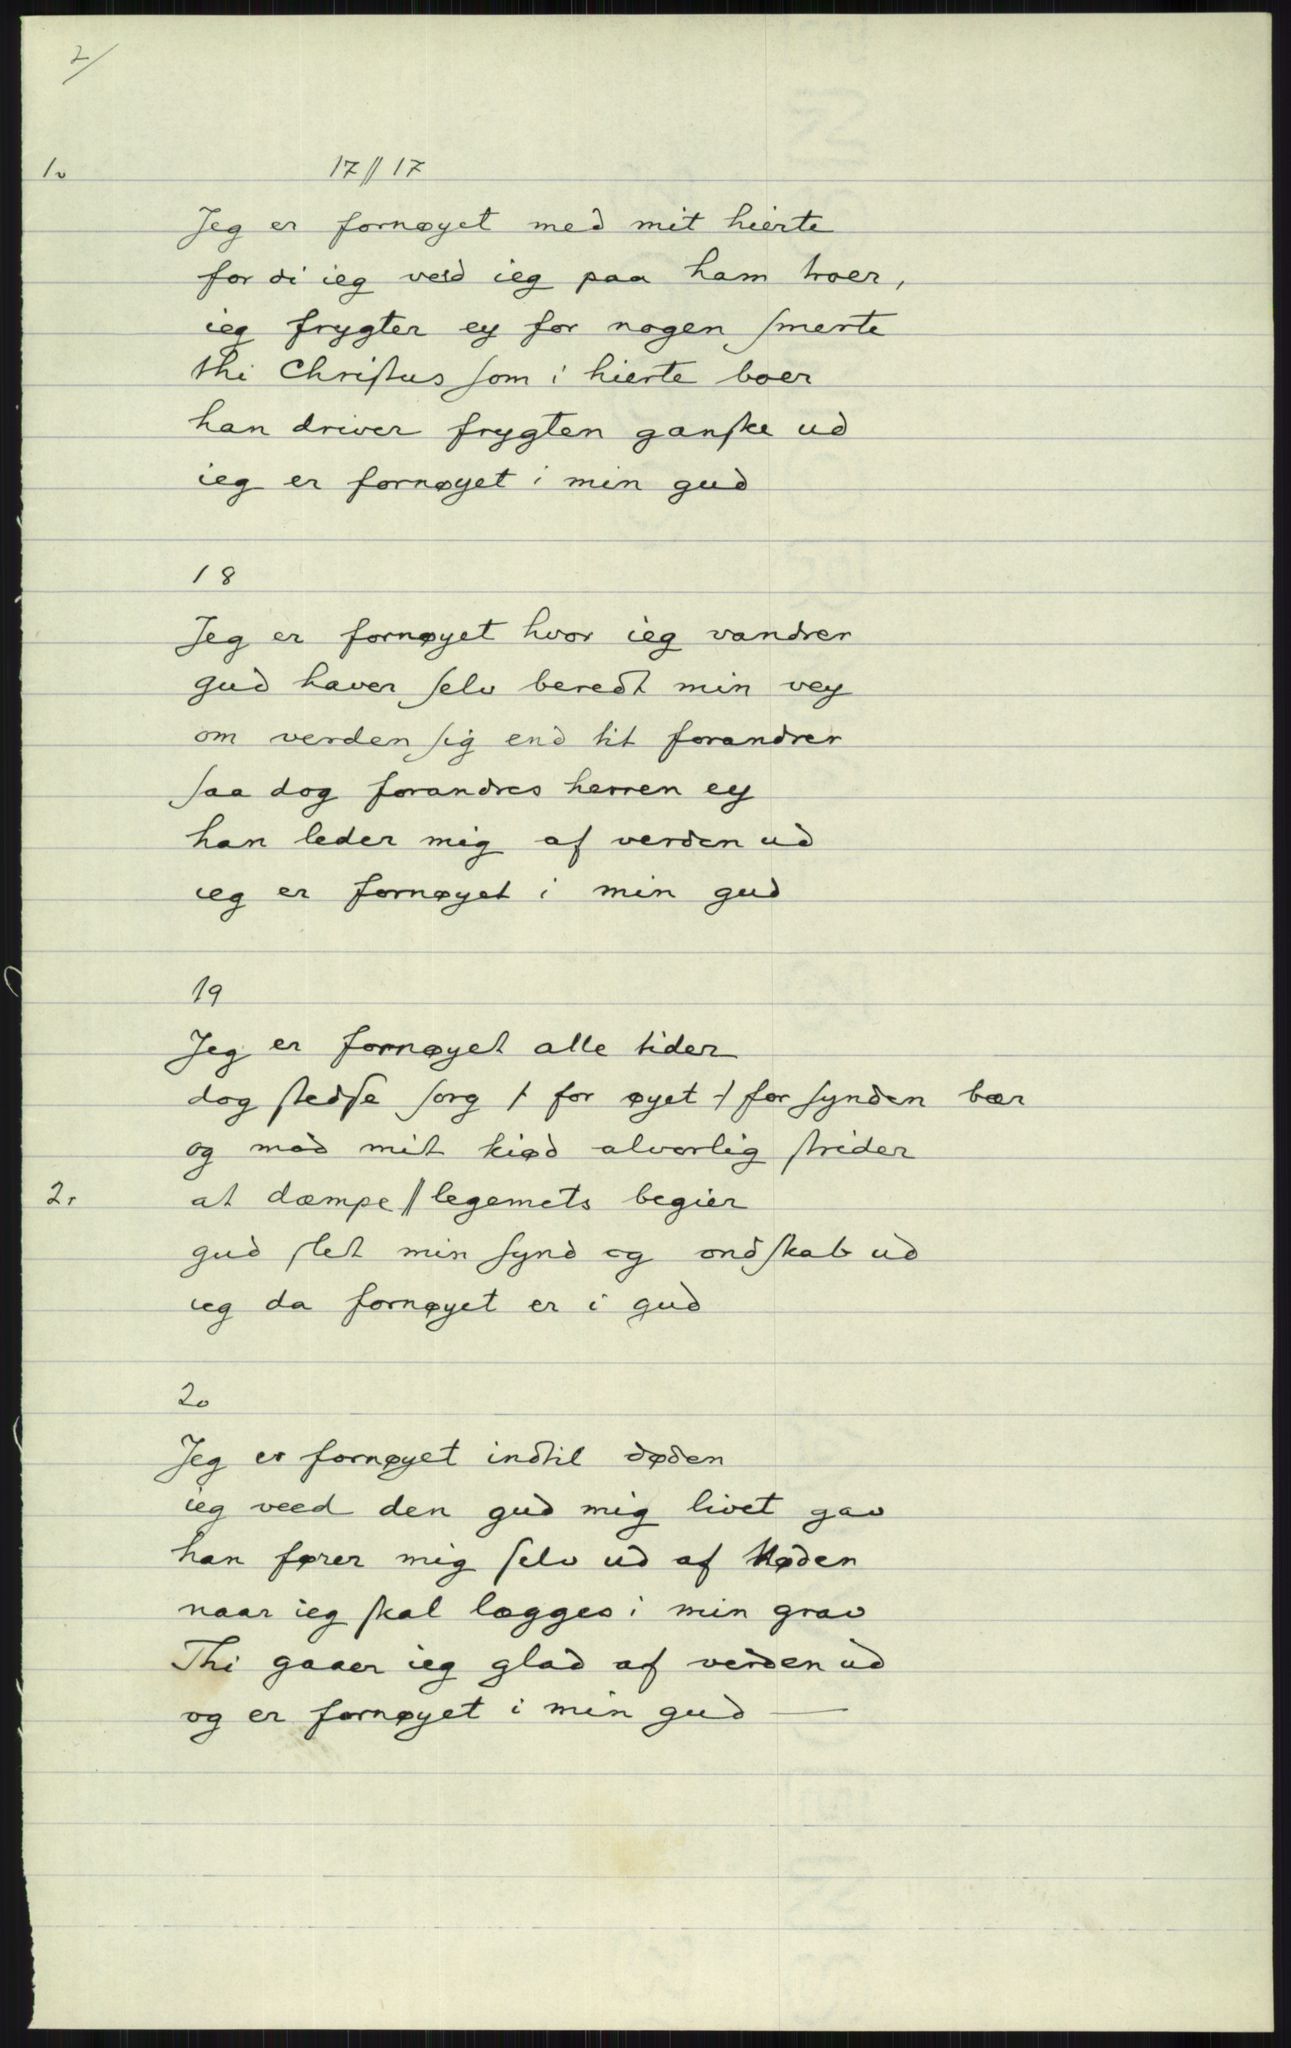 2/
1v 17 // 17
Jeg er fornøyet med mit hierte
for di ieg veed ieg paa ham troer,
ieg frygter ey for nogen smerte
thi Christus som i hierte boer
han driver frygten ganske ud
ieg er fornøyet i min gud
18
Jeg er fornøyet hvor ieg vandrer
gud haver selv beredt min vey
om verden sig end tit forandrer
saa dog forandres herren ey
han leder mig af verden ud
ieg er fornøyet i min gud
19
Jeg er fornøyet alle tider
dog stedse sorg for øyet for synden bær
og mod mit kiød alvorlig strider
2r at dæmpe // legemets begier
gud slet min synd og ondskab ud
ieg da fornøyet er i gud
20
Jeg er fornøyet indtil døden
ieg veed den gud mig livet gav
han fører mig selv ud af nøden
naar ieg skal lægges i min grav
Thi gaaer ieg glad af verden ud
og er fornøyet i min gud —